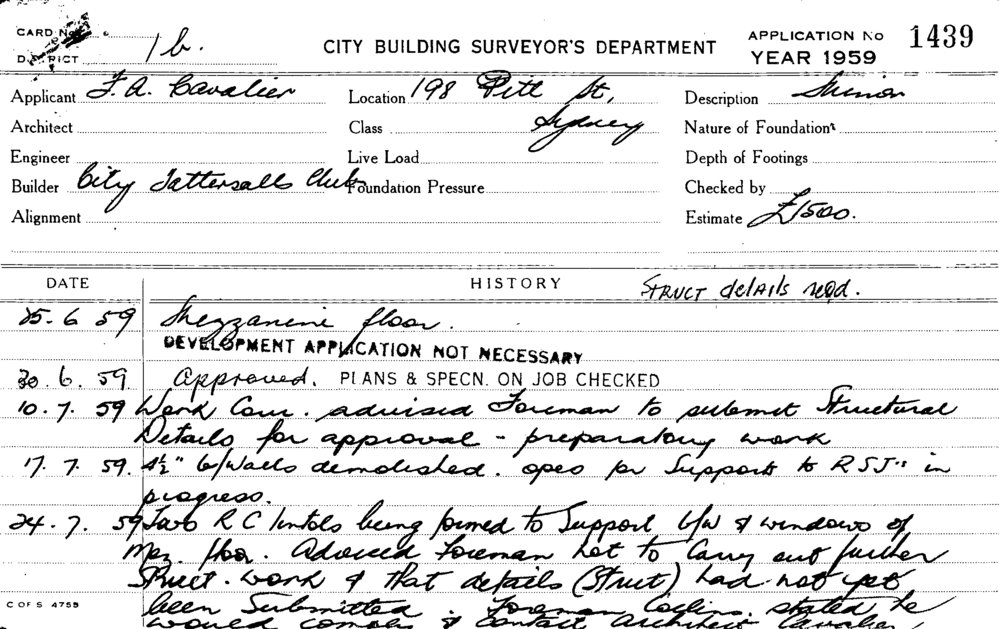 CARD No 1 b. CITY BUILDING SURVEYOR'S DEPARTMENT APPLICATION No 1439
DISTRICT YEAR 1959
Applicant F. A. Cavalier Location 198 Pitt St, Description
Architect Class Sydney Nature of Foundations
Engineer Live Load Depth of Footings
Builder City Tattersalls Club Foundation Pressure Checked by
Alignment Estimate £1500.
DATE HISTORY STRUCT details reqd.
25. 6 59 Mezzanine floor.
DEVELOPMENT APPLICATION NOT NECESSARY
30. 6. 59. Approved. PLANS & SPECN. ON JOB CHECKED
10. 7. 59 Work Com. advised Foreman to submit Structural
Details for approval - preparatory work
17. 7. 59. 4½" b/walls demolished. opes for Support to RSJ's in
progress.
24. 7. 59 Two R C lintols being formed to Support b/w & windows of
Mez. floor. Advised Foreman not to Carry out further
Struct. work & that details (Struct) had not yet
C OF S 4755 been Submitted. Foreman Collins. stated he
would comply & contact architect Cavalier,